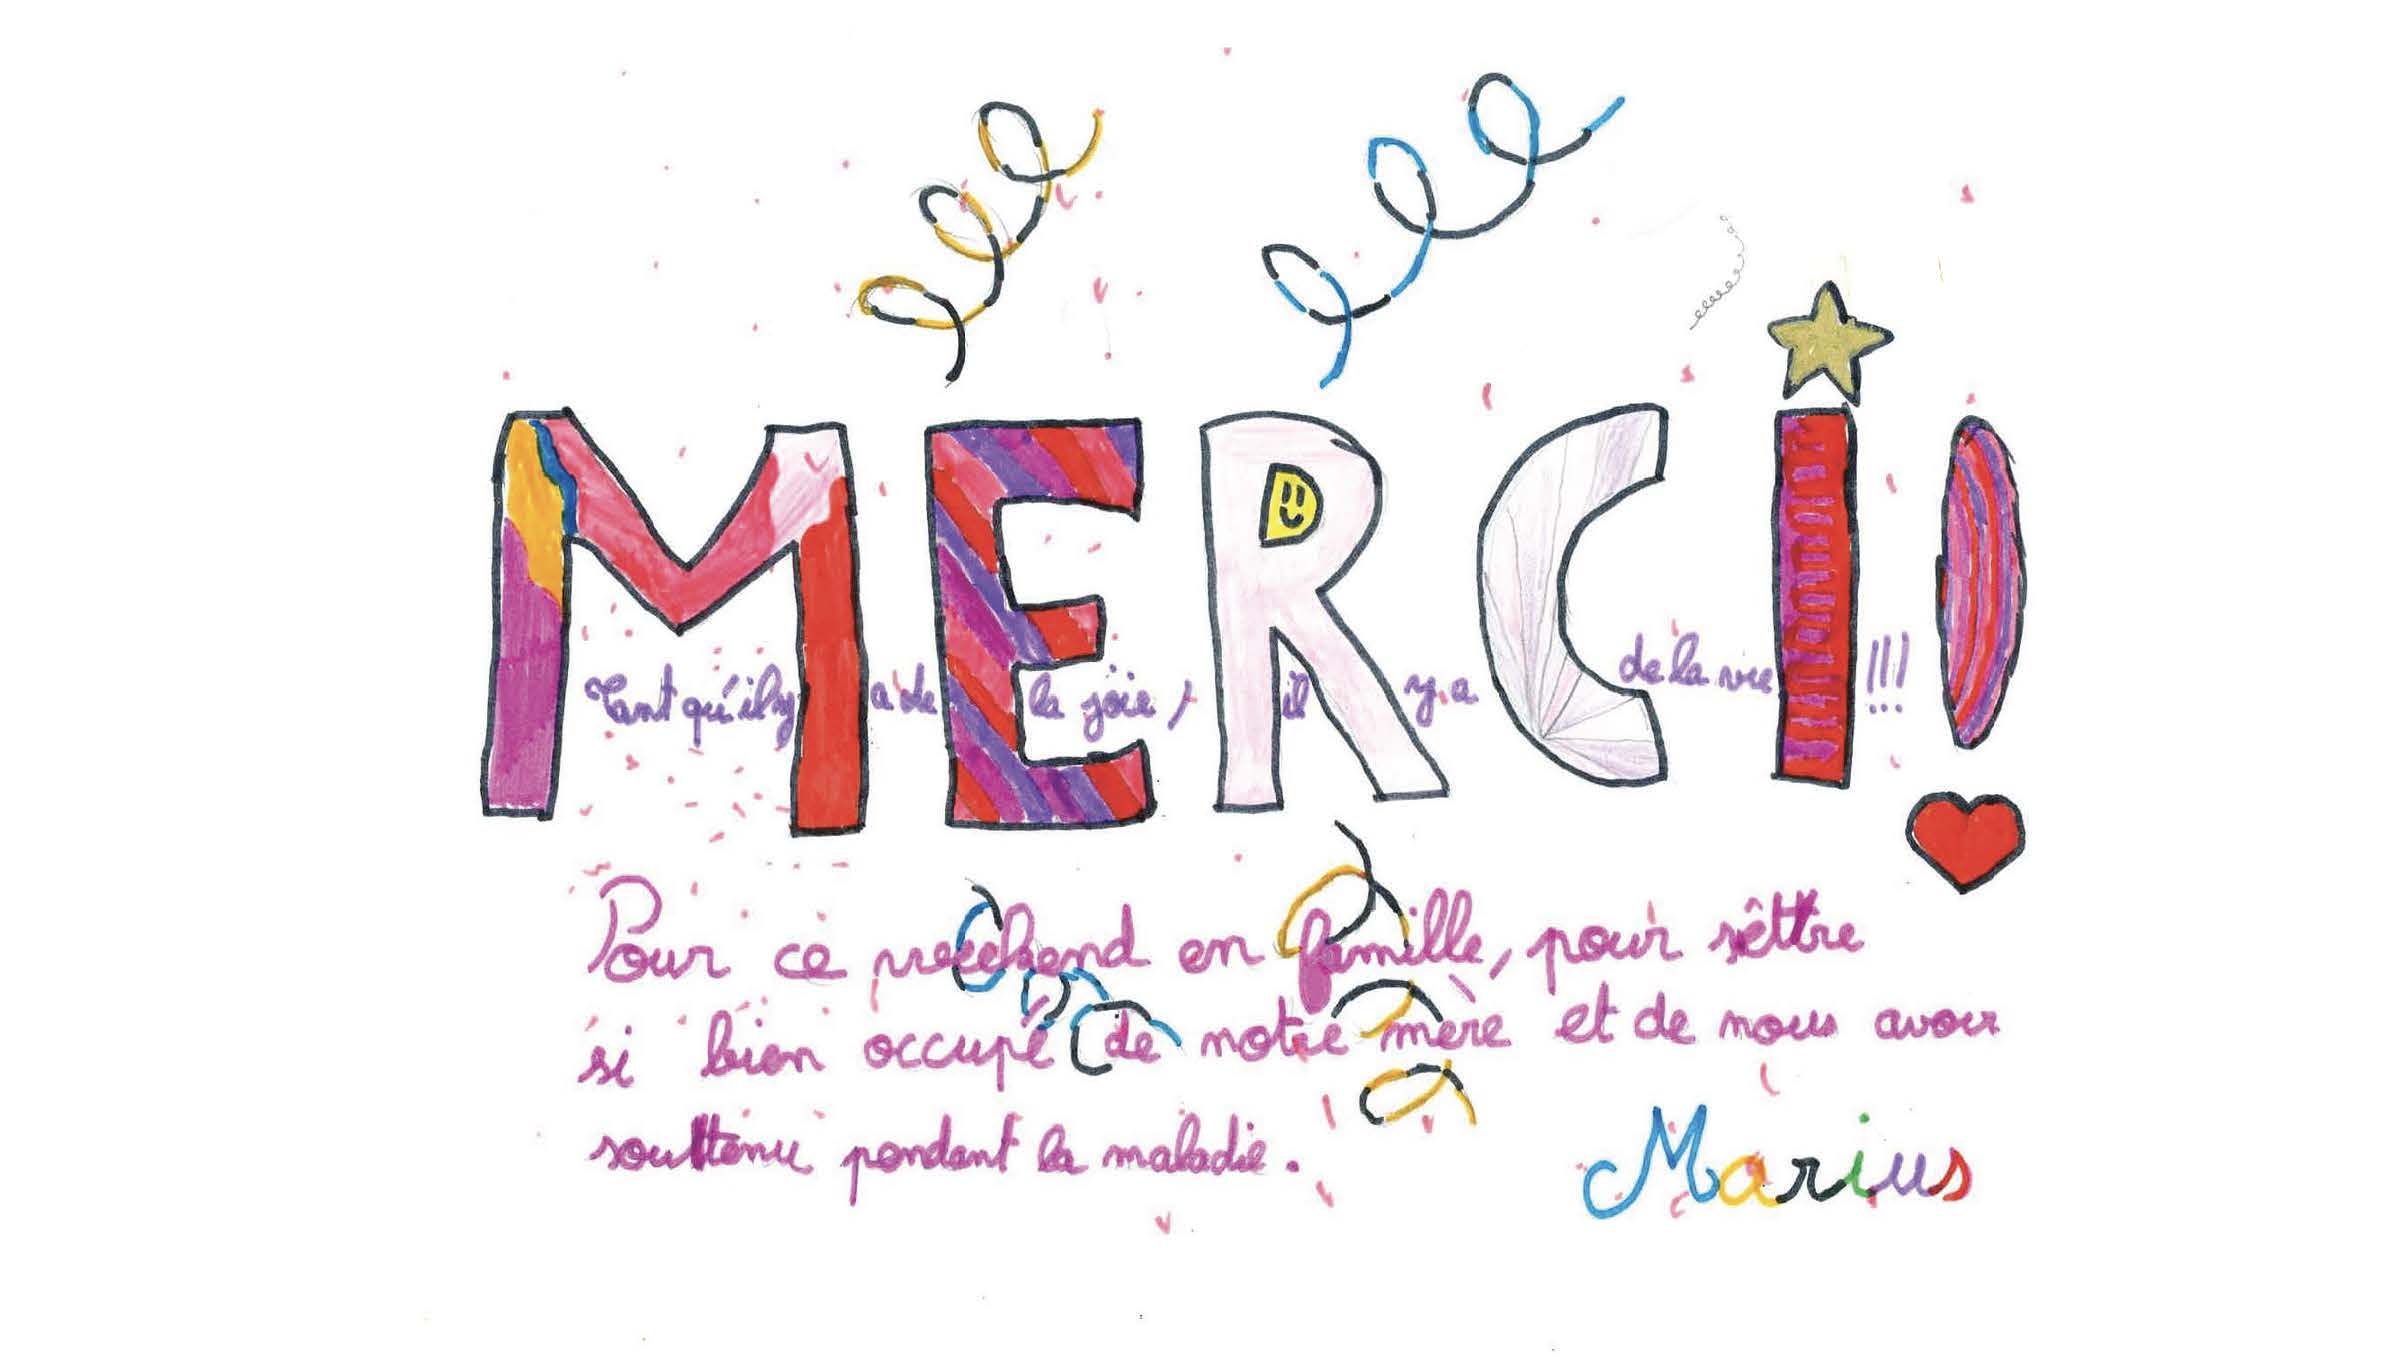 MERCI!
Tant qu'il y a de la joie, il y a de la vie !!!
Pour ce weekend en famille, pour s'êttre
si bien occupé de notre mère et de nous avoir
souttenu pendant la maladie.
Marius